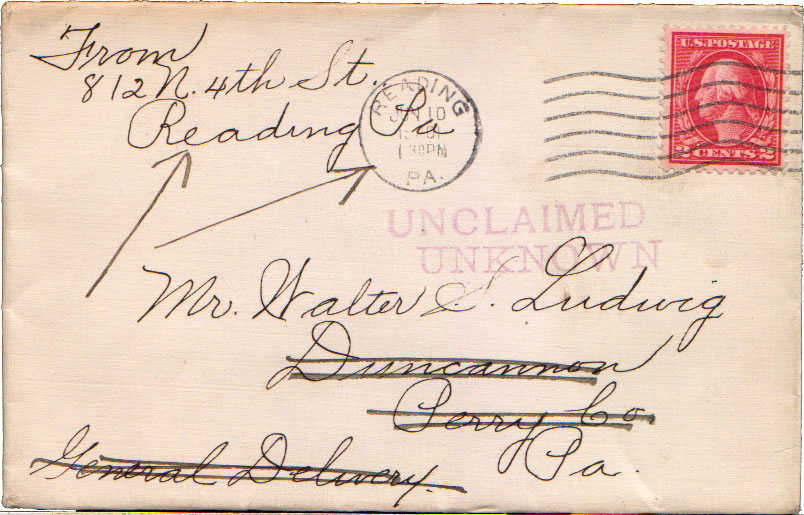 From
812 N. 4th St.
Reading Pa
READING
JUN 10
1:30PM
PA.
U.S. POSTAGE
2 CENTS 2
UNCLAIMED
UNKNOWN
Mr. Walter S. Ludwig
Duncannon
Perry Co.
Pa.
General Delivery.